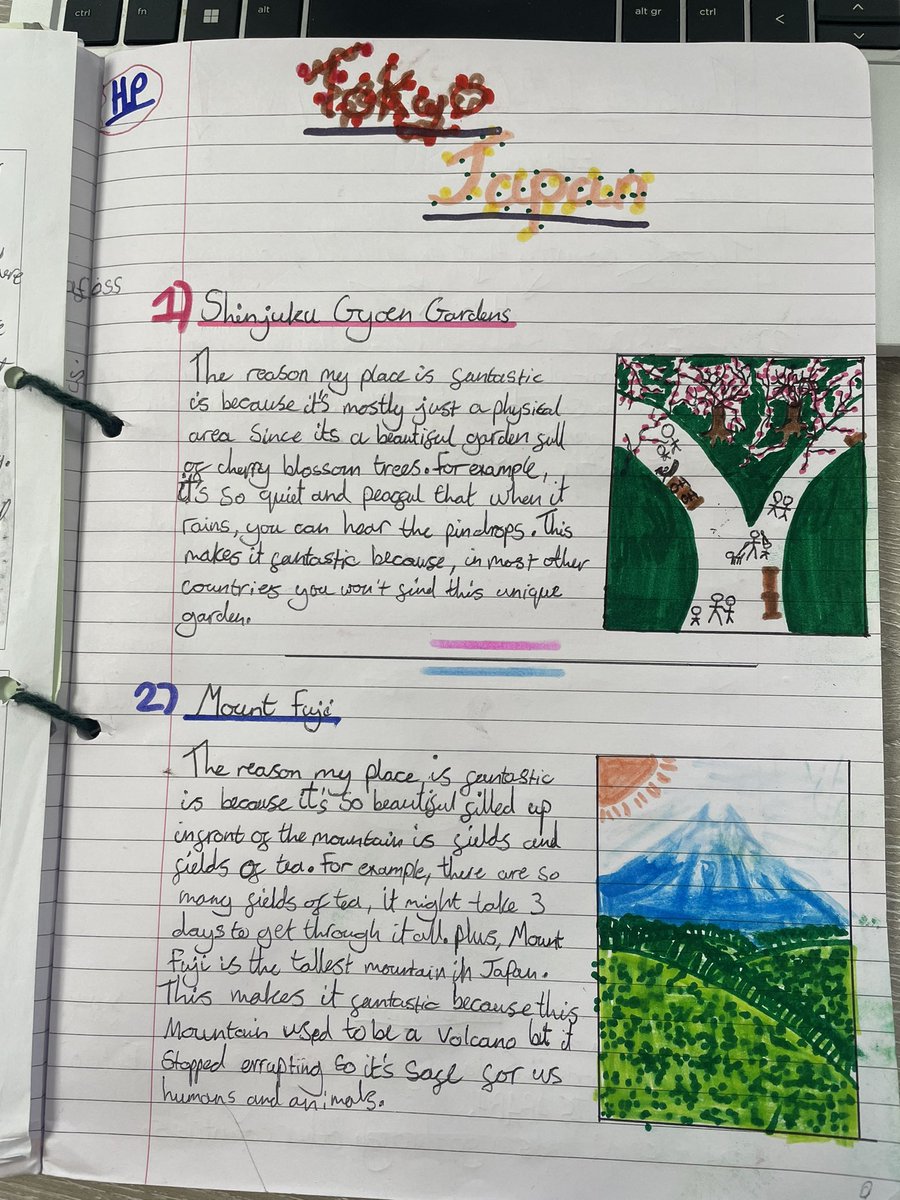 ctrl
fn
alt
alt gr
ctrl
<
HP
Tokyo
Japan
1) Shinjuku Gyoen Gardens
The reason my place is fantastic
is because it's mostly just a physical
area Since its a beautiful garden full
of cherry blossom trees. For example,
it's so quiet and peaceful that when it
rains, you can hear the pindrops. This
makes it fantastic because, in most other
countries you won't find this unique
garden.
2) Mount Fuji
The reason my place is fantastic
is because it's so beautiful filled up
infront of the mountain is fields and
fields of tea. For example, there are so
many fields of tea, it might take 3
days to get through it all. plus, Mount
Fuji is the tallest mountain in Japan.
This makes it fantastic because this
Mountain used to be a volcano but it
stopped errupting so it's safe for us
humans and animals.